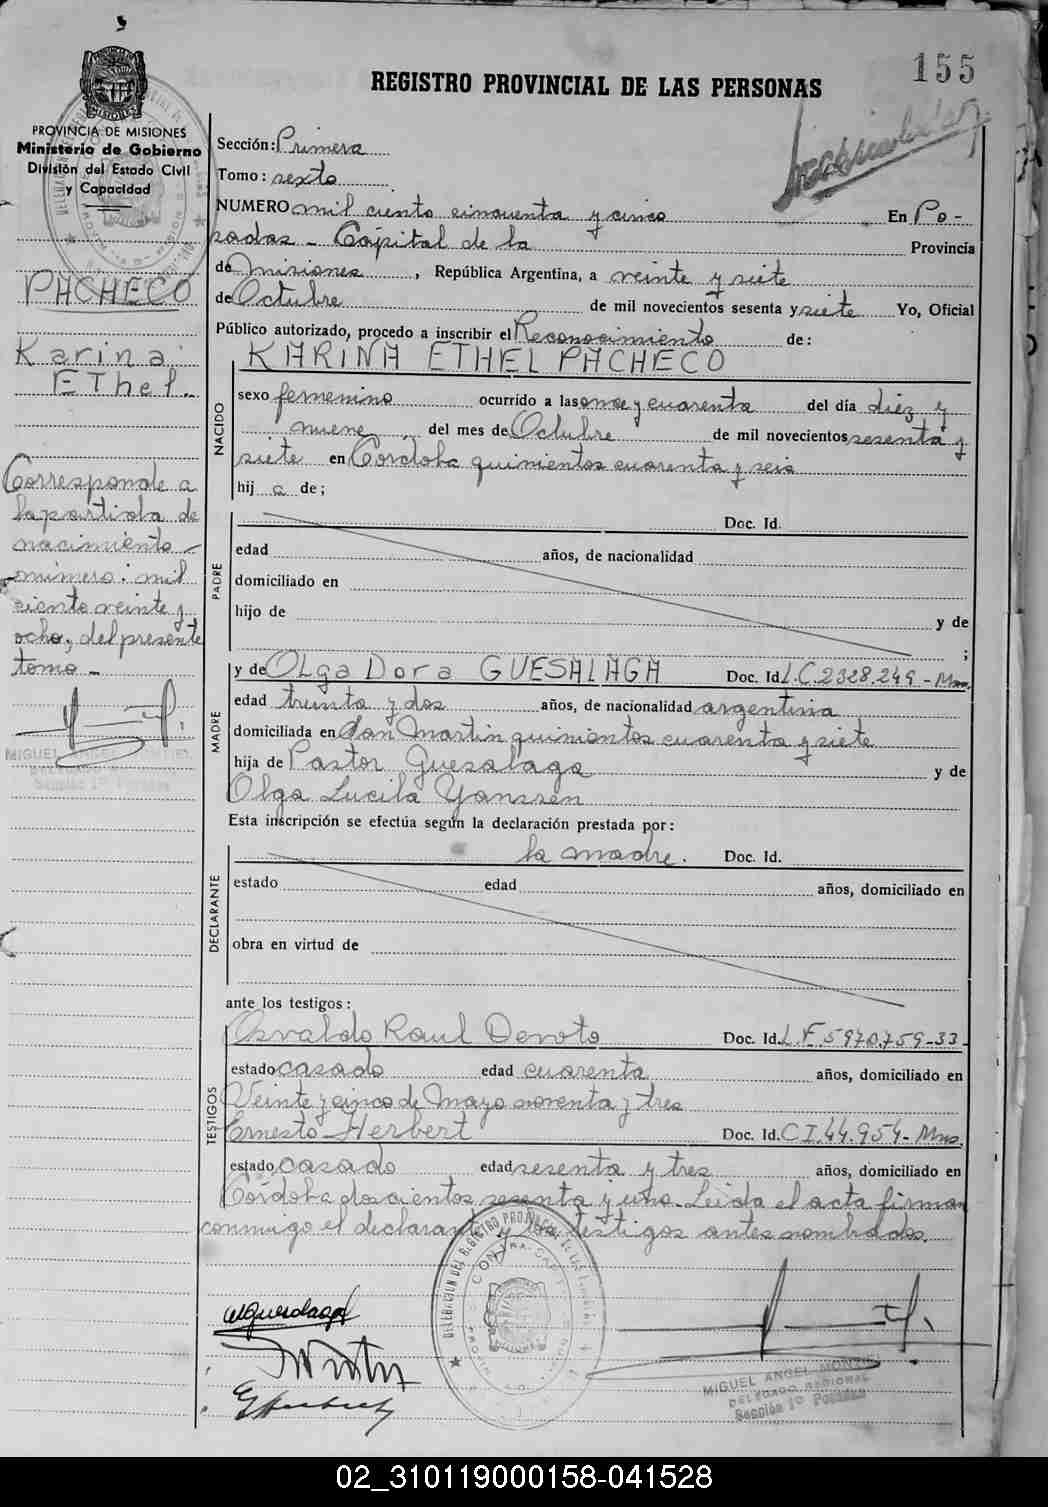 155
REGISTRO PROVINCIAL DE LAS PERSONAS
PROVINCIA DE MISIONES
Ministerio de Gobierno
División del Estado Civil
y Capacidad
PACHECO
Karina
EThel..
Corresponde a
la partida de
nacimiento
número: mil
ciento veinte y
ocho, del presente
tomo -
MIGUEL ANGEL MONTIEL
DELEGADO
Sección 1º Posadas
Sección: Primera
Tomo: sexto
NUMERO mil ciento cincuenta y cinco En Po-
sadas - Capital de la Provincia
de Misiones, República Argentina, a veinte y siete
de Octubre de mil novecientos sesenta y siete Yo, Oficial
Público autorizado, procedo a inscribir el Reconocimiento de:
NACIDO
KARINA ETHEL PACHECO
sexo femenino ocurrido a las once y cuarenta del día diez y
nueve del mes de Octubre de mil novecientos sesenta y
siete en Córdoba quinientos cuarenta y seis
hij a de;
PADRE
Doc. Id.
edad años, de nacionalidad
domiciliado en
hijo de y de
;
MADRE
y de OLga Dora GUESALAGA Doc. Id. L.C. 2328.249 - Mns.
edad treinta y dos años, de nacionalidad argentina
domiciliada en San Martín quinientos cuarenta y siete
hija de Pastor Guesalaga y de
Olga Lucila Yanssen
Esta inscripción se efectúa según la declaración prestada por:
DECLARANTE
la madre. Doc. Id.
estado edad años, domiciliado en
obra en virtud de
ante los testigos:
TESTIGOS
Osvaldo Raul Devoto Doc. Id. L.E. 5970.759-33-
estado casado edad cuarenta años, domiciliado en
Veinte y cinco de Mayo noventa y tres
Ernesto Herbert Doc. Id. C I. 44.954 - Mns.
estado casado edad sesenta y tres años, domiciliado en
Córdoba doscientos sesenta y uno. Leida el acta firman
conmigo el declarante y los testigos antes nombrados.
MIGUEL ANGEL MONTIEL
DELEGADO REGIONAL
Sección 1º Posadas
02_310119000158-041528